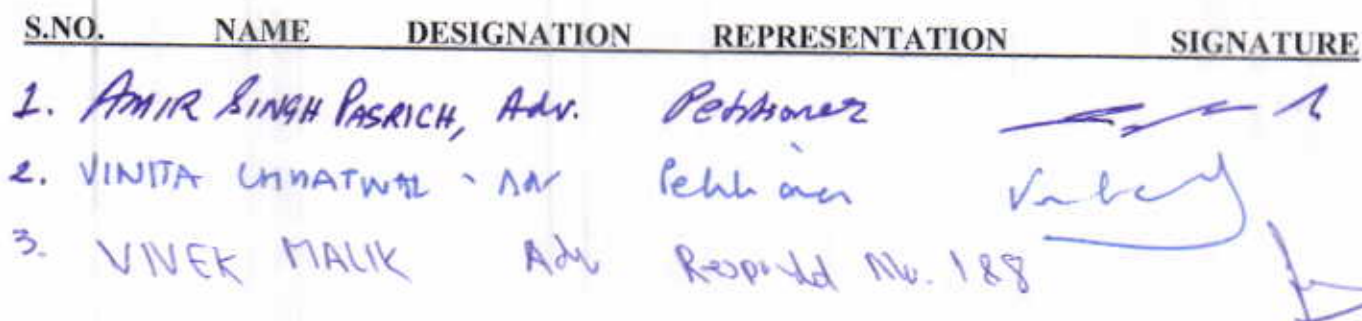 S.NO. NAME DESIGNATION REPRESENTATION SIGNATURE
1. AMIR SINGH PASRICH, Adv. Petitioner
2. VINITA CHHATWAL - Adv Petitioner
3. VIVEK MALIK Adv Respondent No. 1&8